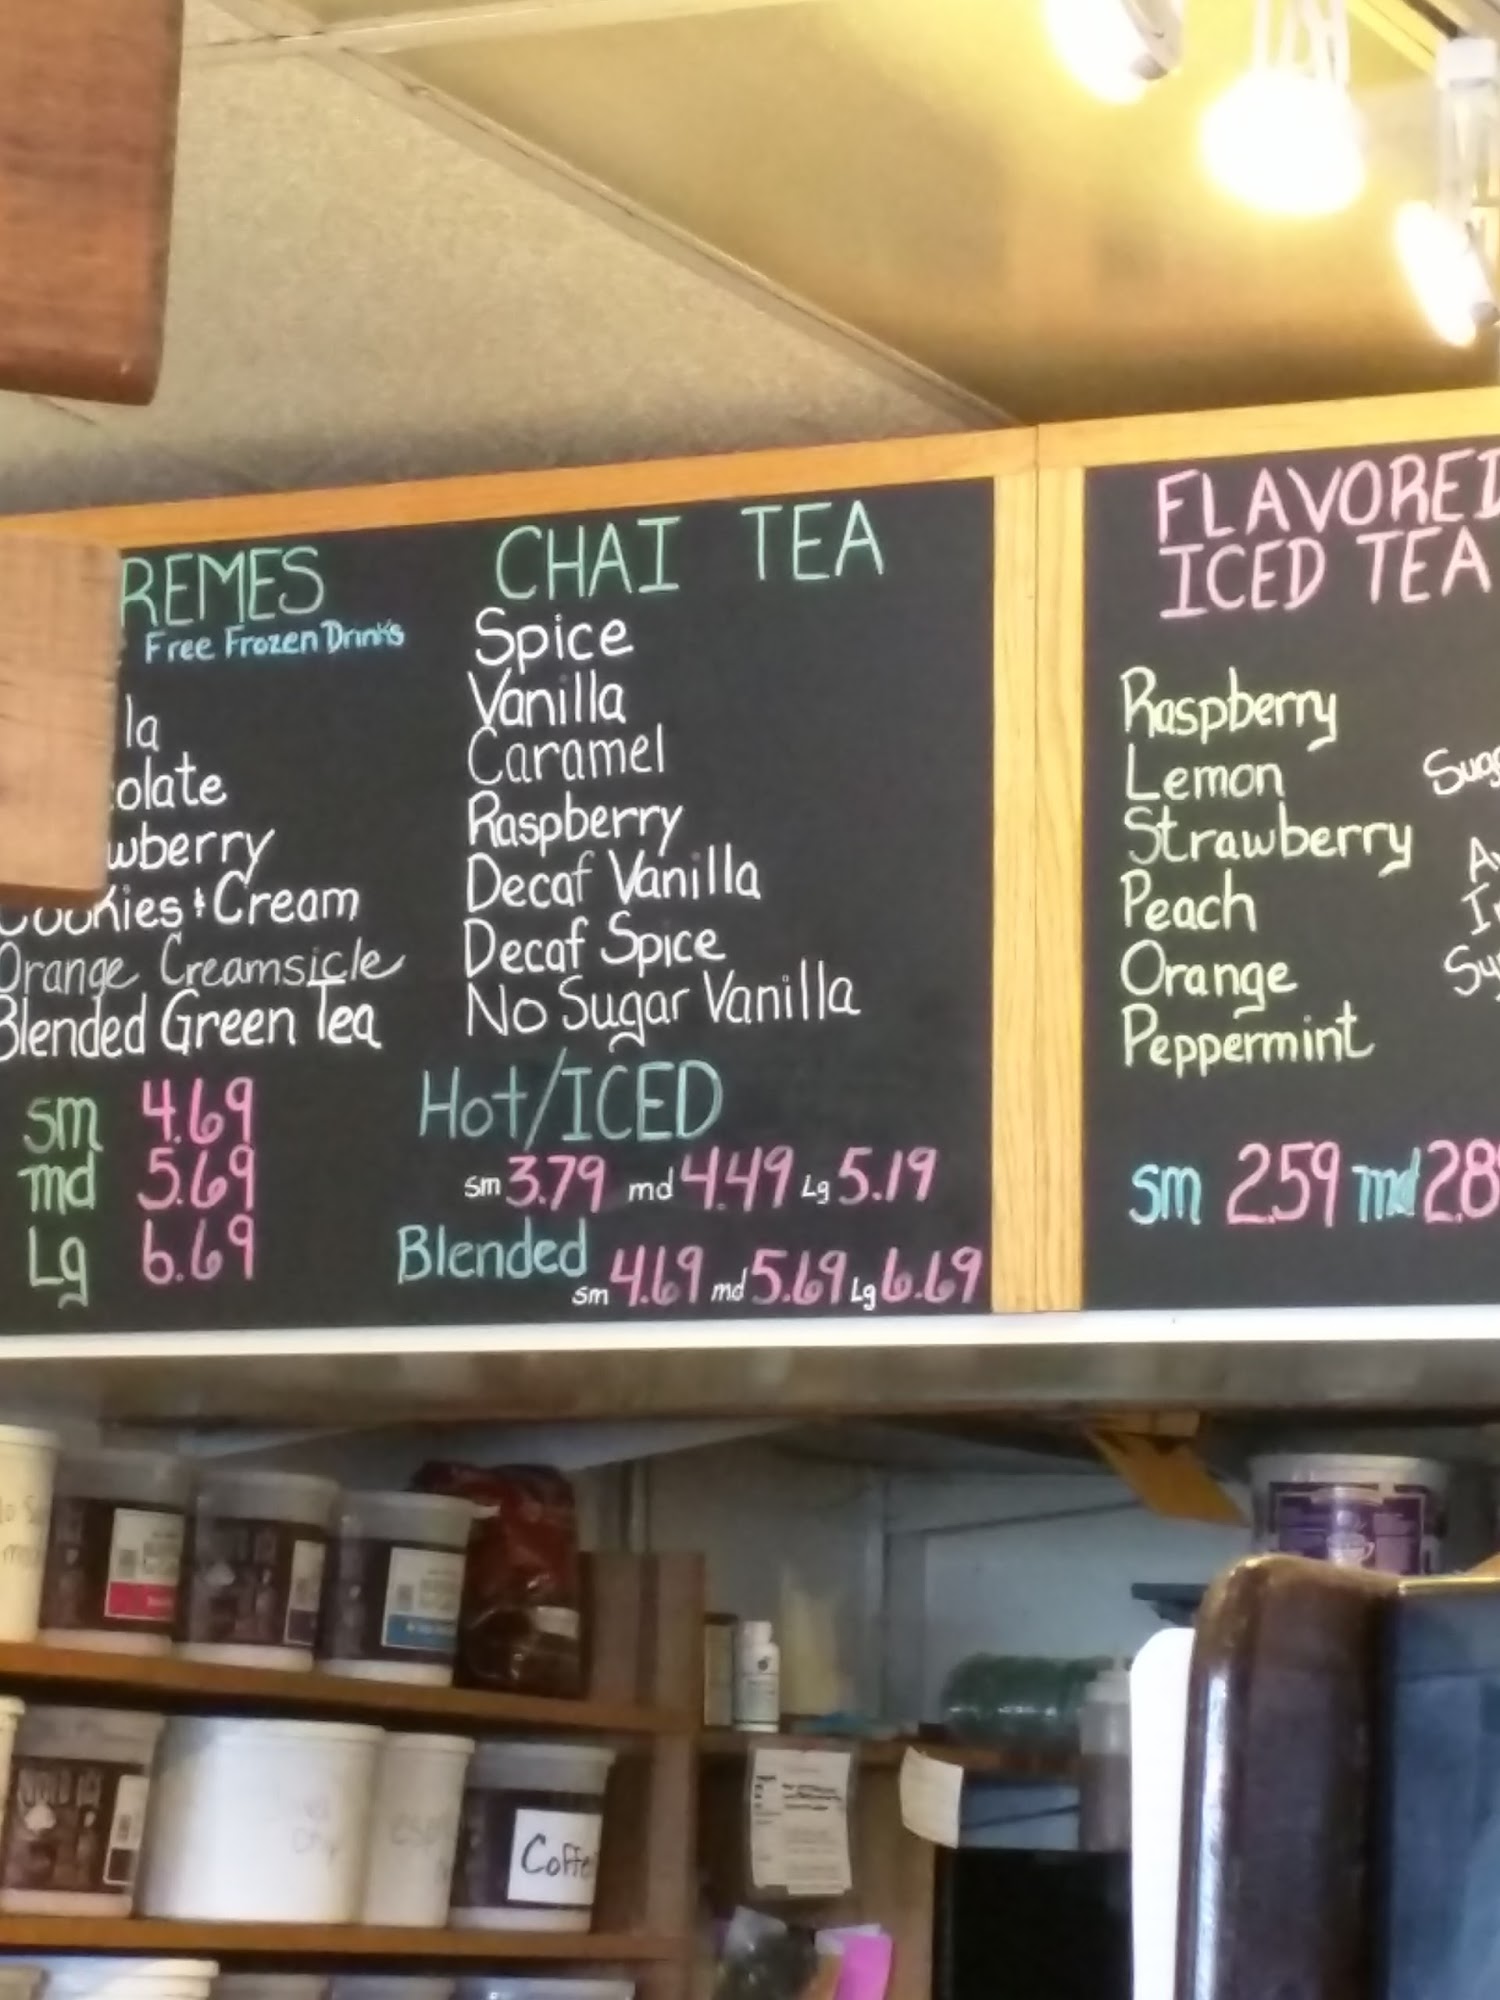 REMES
Free Frozen Drinks
la
colate
wberry
Cookies & Cream
Orange Creamsicle
Blended Green Tea
sm 4.69
md 5.69
Lg 6.69
CHAI TEA
Spice
Vanilla
Caramel
Raspberry
Decaf Vanilla
Decaf Spice
No Sugar Vanilla
Hot/ICED
sm 3.79 md 4.49 Lg 5.19
Blended
sm 4.69 md 5.69 Lg 6.69
FLAVORED
ICED TEA
Raspberry
Lemon
Strawberry
Peach
Orange
Peppermint
sm 2.59 md 2.8
Coffe